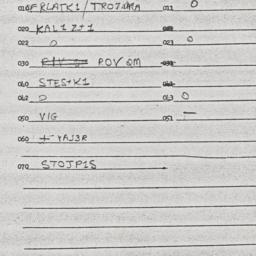 010 FRLATK1 / TROZAMA 011 0
020 KAL1ZJ1
022 0 023 0
030 POVQM 031
040 STESTK1
042 0 043 0
050 VIG 051 —
060 YAJ3R
070 STOJP1S